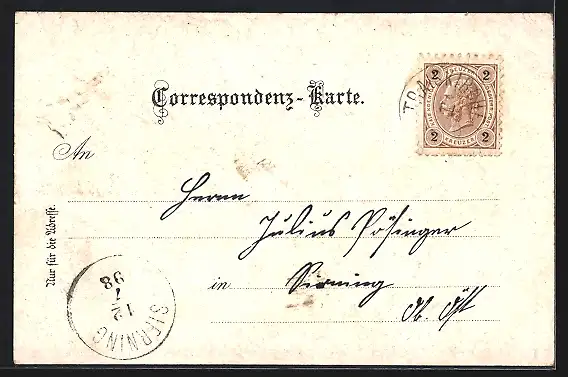 Correspondenz-Karte.
2 2
KREUZER
2 2
KREUZER
An
Herrn
Julius Pösinger
in Sierning
Ob. Öst
Nur für die Adresse.
SIERNING
12 7 98